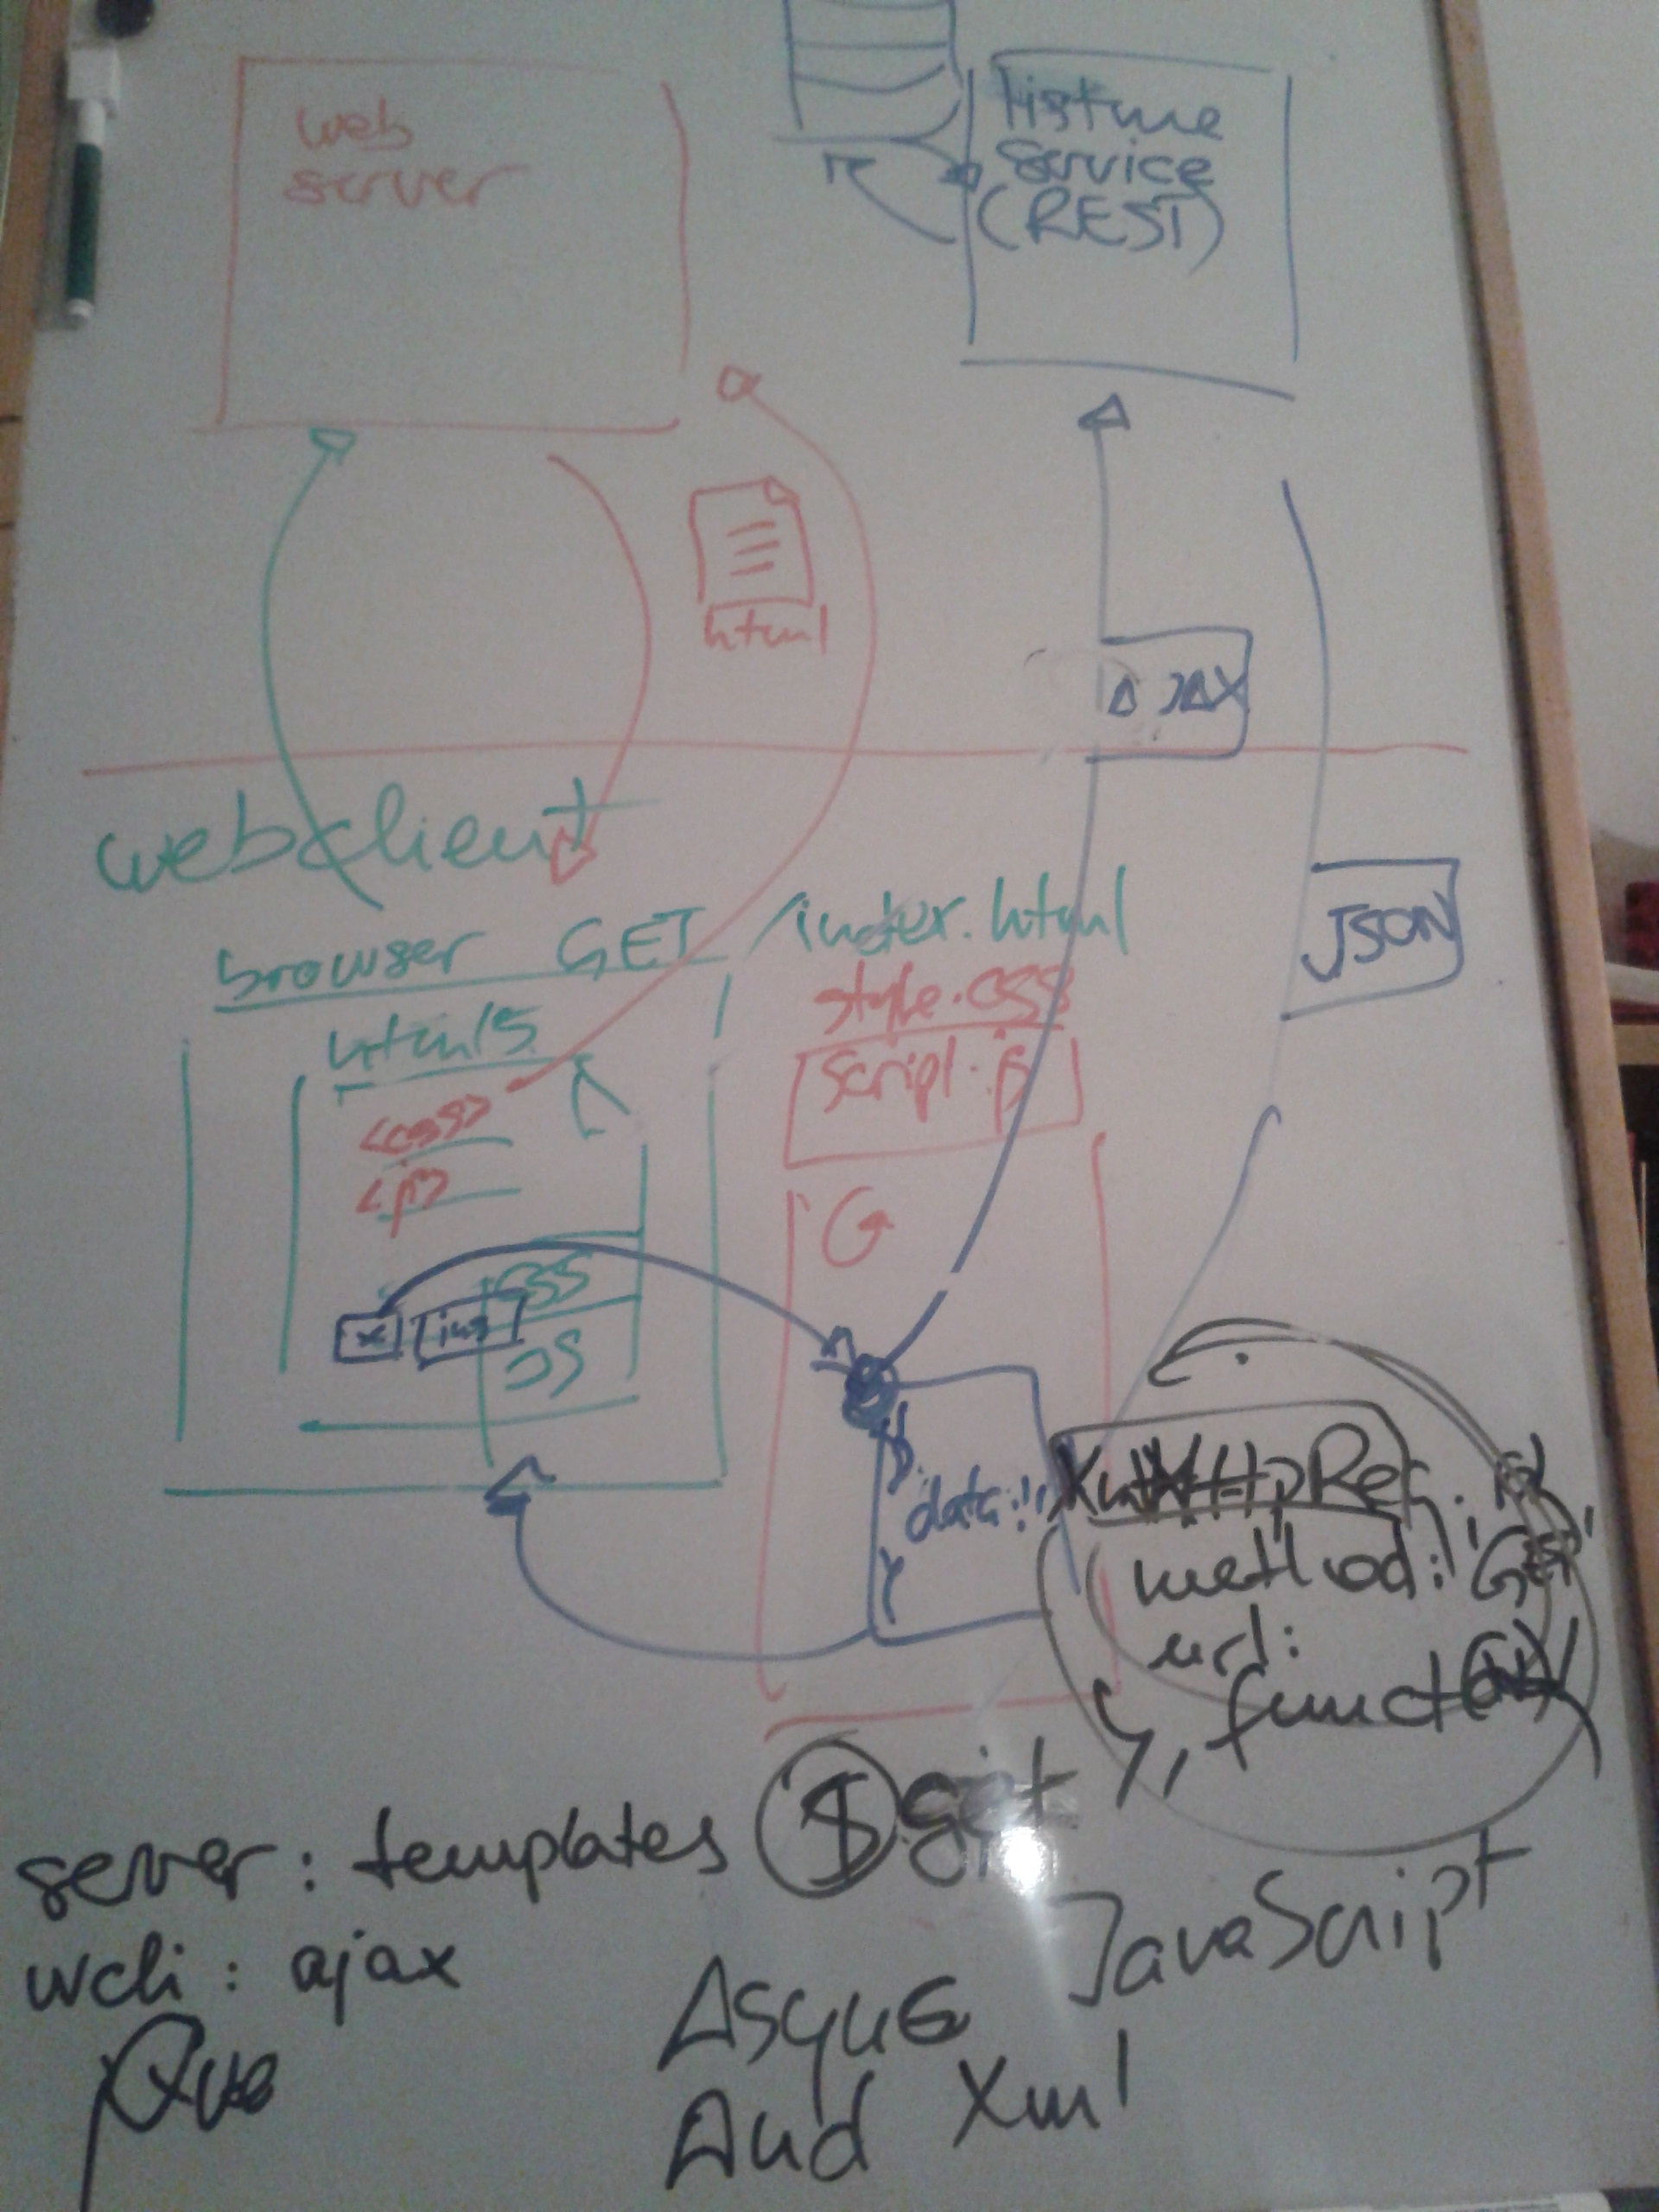 web
server
service
(REST)
html
AJAX
webclient
browser GET /index.html
style.css
script.js
JSON
html5
<css>
<js>
G
CSS
JS
x
data:
XmlHttpReq
method: 'GET'
url:
}, function
$ get
server: templates
wcli: ajax
JavaScript
Async
And Xml